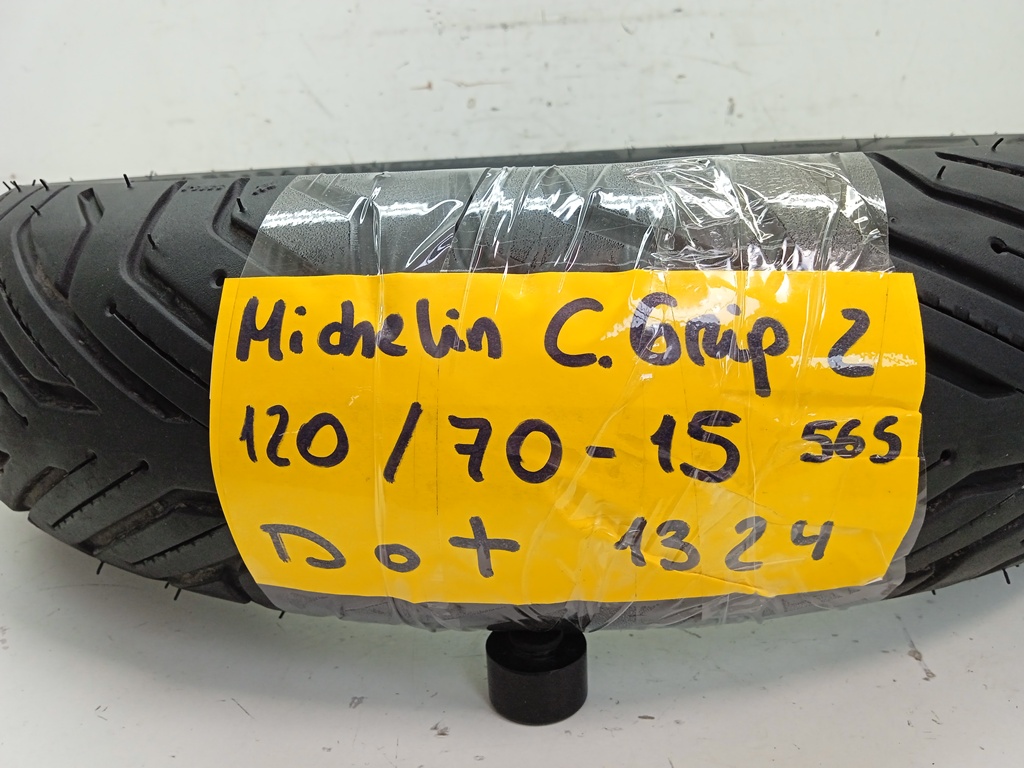 Michelin C. Grip 2
120/70-15 56S
Dot 1324